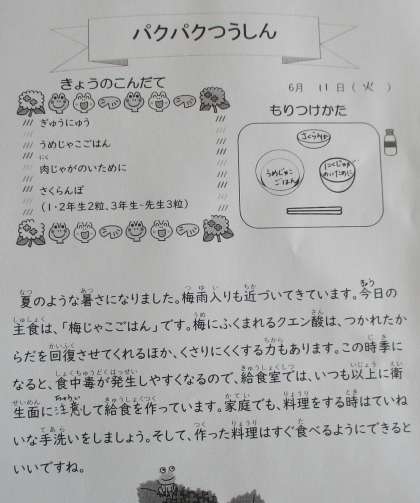 パクパクつうしん
きょうのこんだて
6月 11日(火)
ぎゅうにゅう
うめじゃこごはん
肉じゃがのいために
さくらんぼ
(1・2年生2粒、3年生~先生3粒)
もりつけかた
さくらんぼ
うめじゃこ
ごはん
にくじゃが
のいために
夏のような暑さになりました。梅雨入りも近づいてきています。今日の
主食は、「梅じゃこごはん」です。梅にふくまれるクエン酸は、つかれたか
らだを回復させてくれるほか、くさりにくくする力もあります。この時季に
なると、食中毒が発生しやすくなるので、給食室では、いつも以上に衛
生面に注意して給食を作っています。家庭でも、料理をする時はていね
いな手洗いをしましょう。そして、作った料理はすぐ食べるようにできると
いいですね。